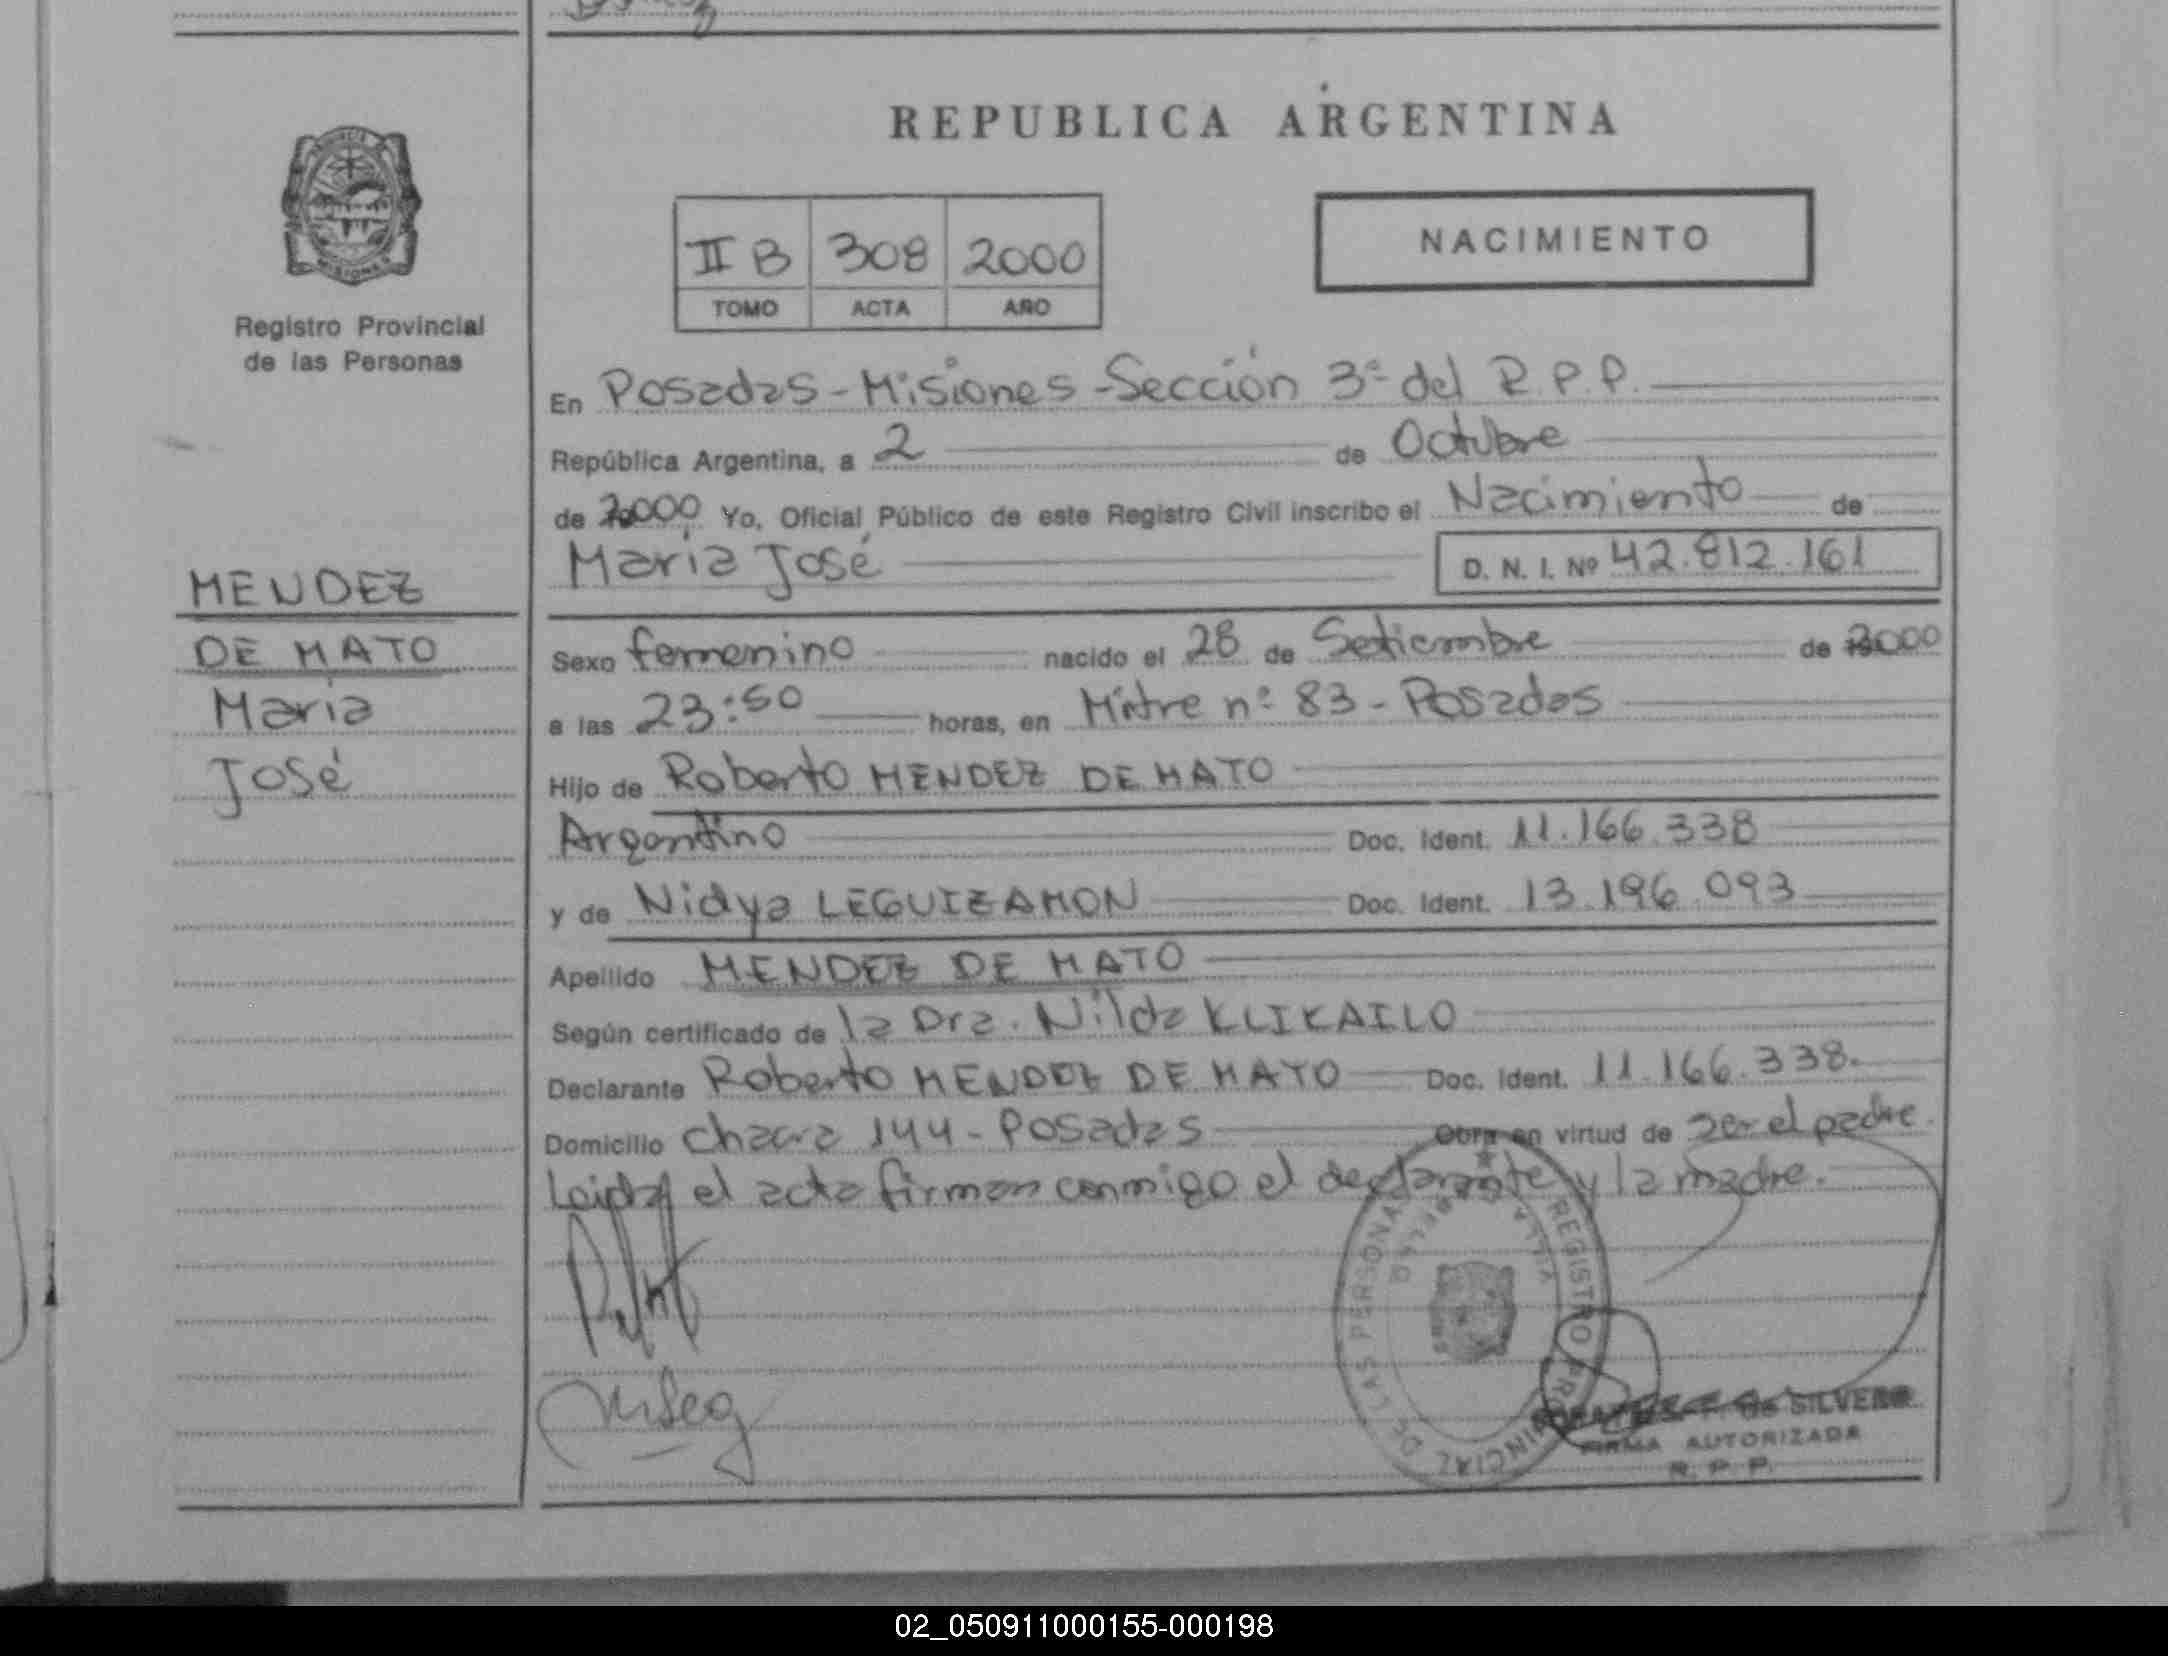 REPUBLICA ARGENTINA
PROVINCIA
MISIONES
Registro Provincial
de las Personas
II B 308 2000
TOMO ACTA AÑO
NACIMIENTO
En Posadas - Misiones - Sección 3ª del R.P.P.
República Argentina, a 2 de Octubre
de 2000 Yo, Oficial Público de este Registro Civil inscribo el Nacimiento de
María José D. N. I. Nº 42.812.161
MENDEZ
DE MATO
María
José
Sexo femenino nacido el 28 de Setiembre de 2000
a las 23:50 horas, en Mitre nº 83 - Posadas
Hijo de Roberto MENDEZ DE MATO
Argentino Doc. Ident. 11.166.338
y de Nidya LEGUIZAMON Doc. Ident. 13.196.093
Apellido MENDEZ DE MATO
Según certificado de la Dra. Nilda KLIKAILO
Declarante Roberto MENDEZ DE MATO Doc. Ident. 11.166.338.
Domicilio Chacra 144 - Posadas Obra en virtud de ser el padre.
Leida el acta firman conmigo el declarante y la madre.
REGISTRO PROVINCIAL DE LAS PERSONAS
VILLA
de SILVERO
FIRMA AUTORIZADA
R. P. P.
02_050911000155-000198